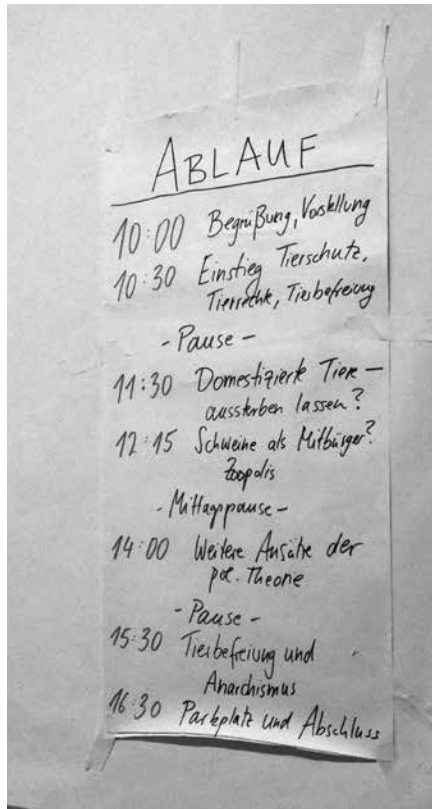 ABLAUF
10:00 Begrüßung, Vorstellung
10:30 Einstieg Tierschutz,
Tierrechte, Tierbefreiung
- Pause -
11:30 Domestizierte Tiere -
aussterben lassen?
12:15 Schweine als Mitbürger?
Zoopolis
- Mittagspause -
14:00 Weitere Ansätze der
pol. Theorie
- Pause -
15:30 Tierbefreiung und
Anarchismus
16:30 Parkplatz und Abschluss